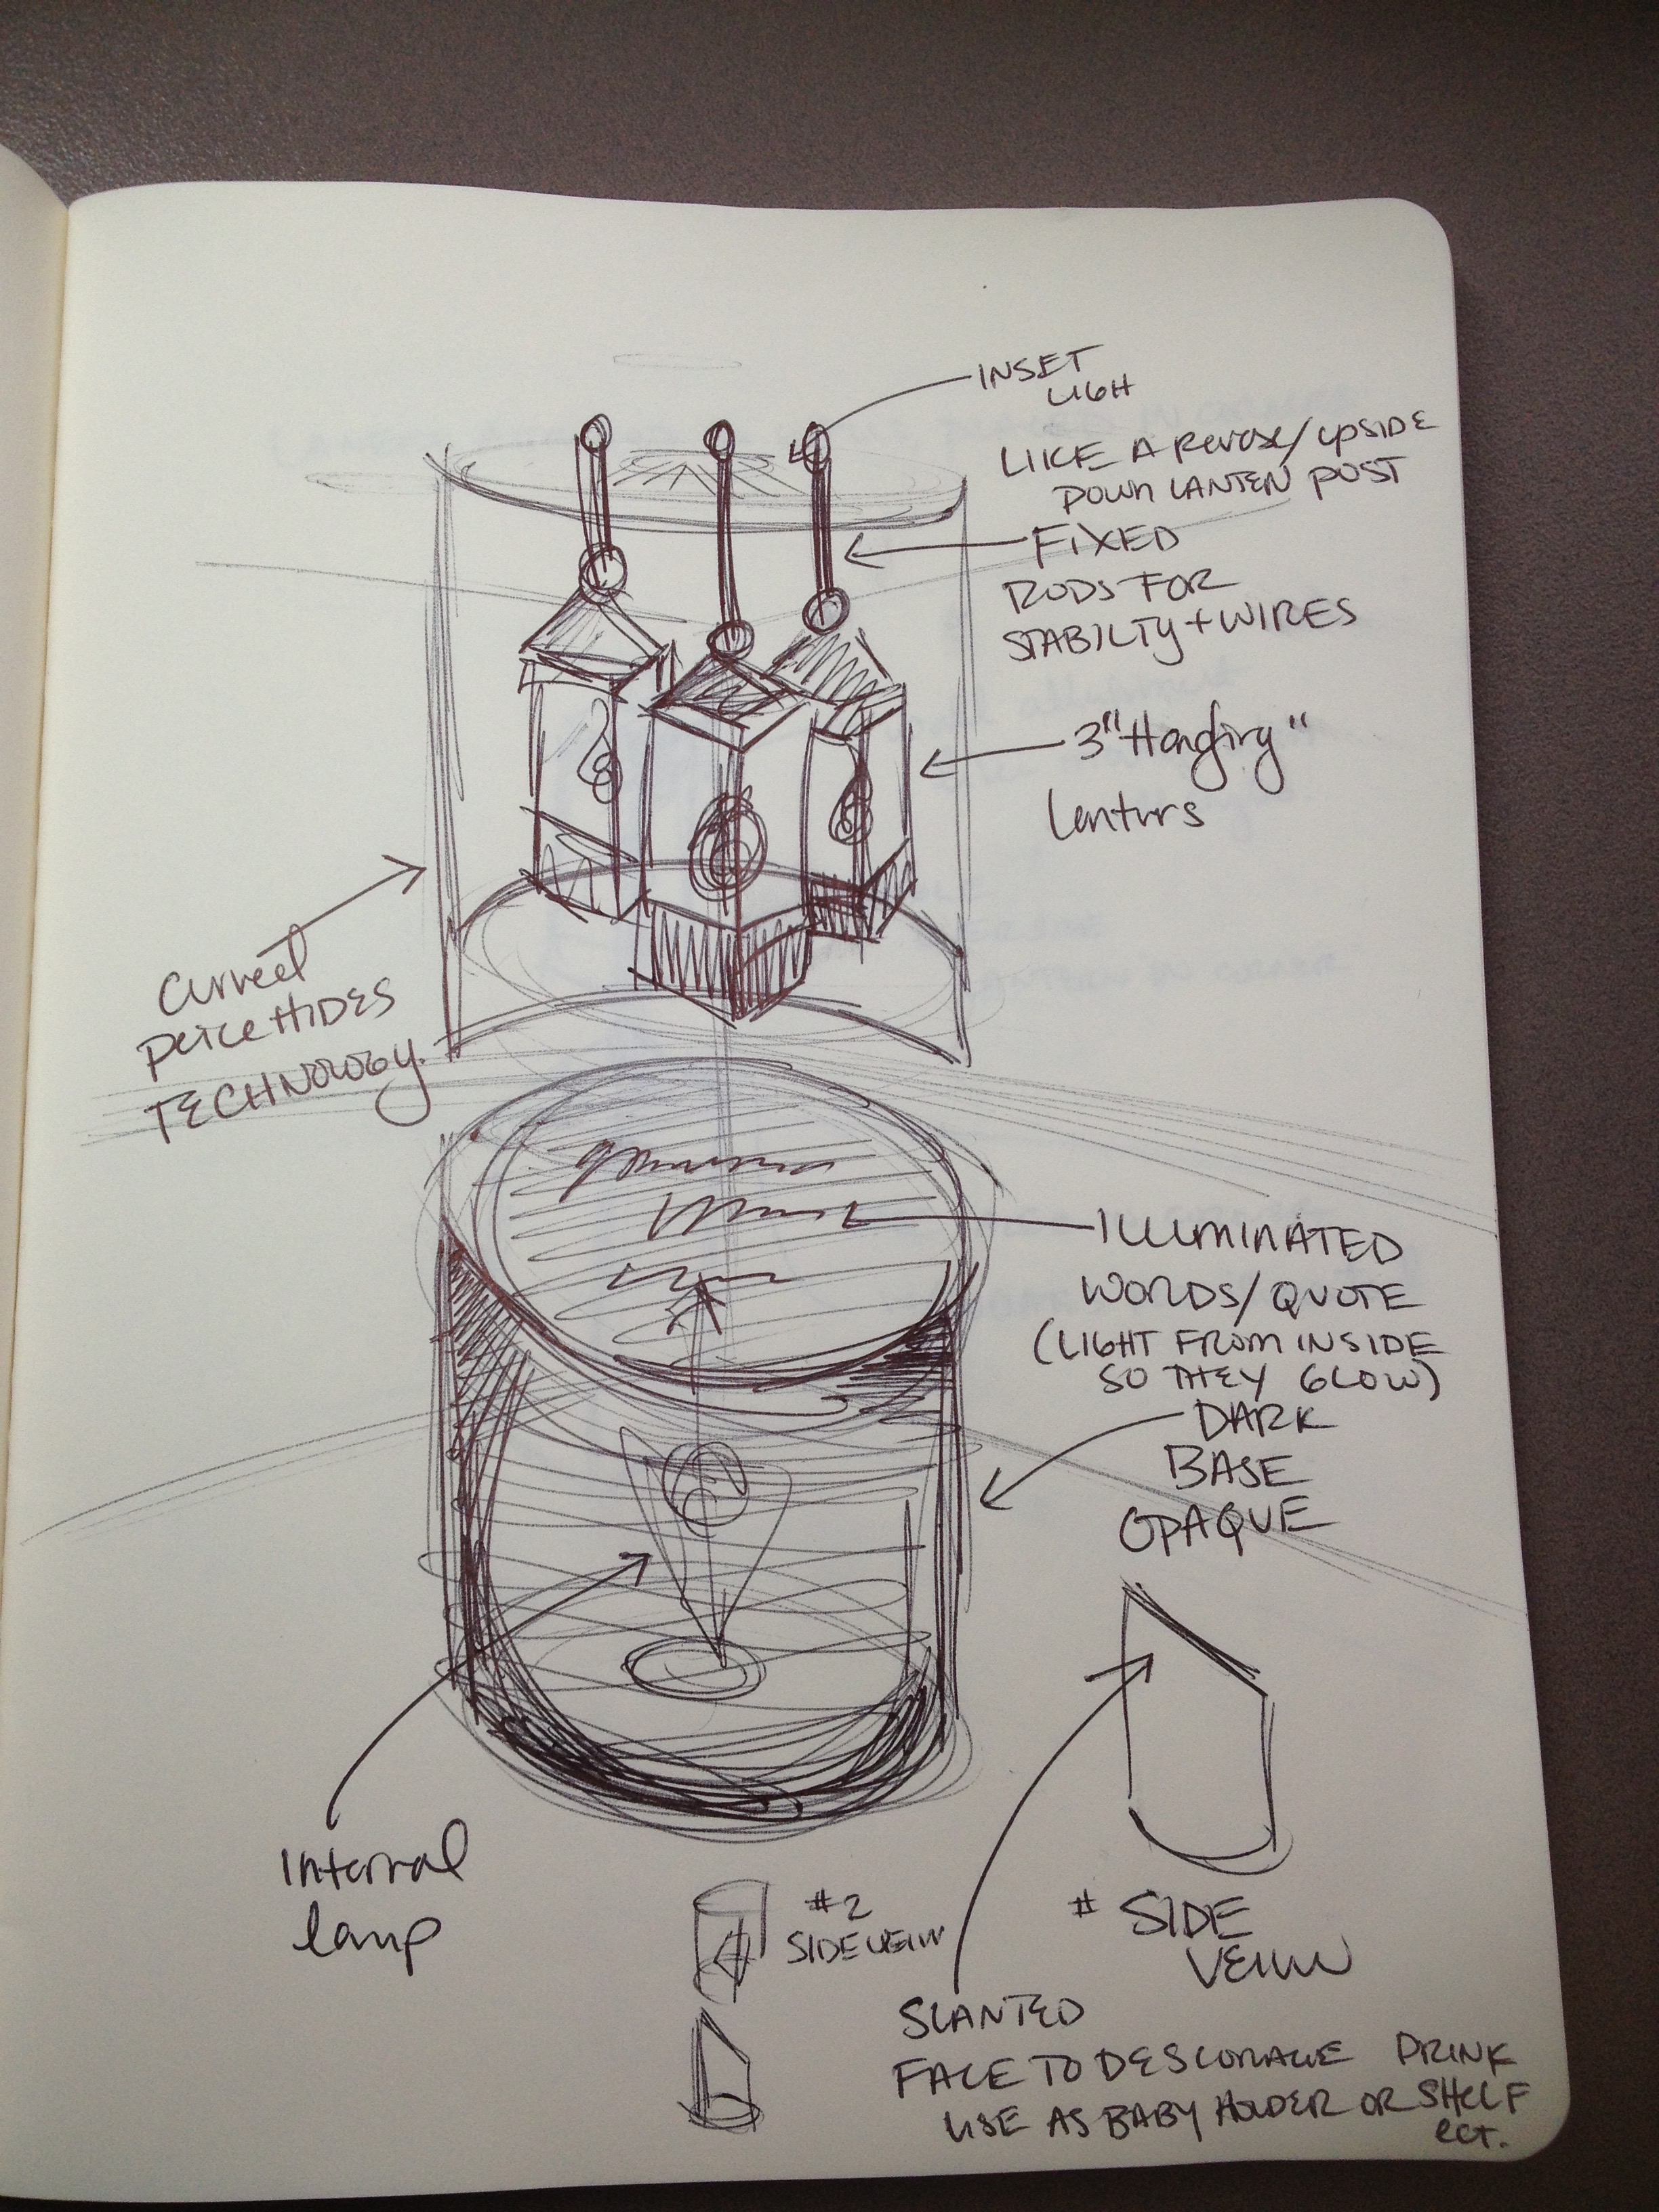 INSET
LIGH
LIKE A REVERSE/UPSIDE
DOWN LANTEN POST
FIXED
RODS FOR
STABILTY + WIRES
3 "Hanging"
Lanturs
Curved
PEICE HIDES
TECHNOLOGY.
ILLUMINATED
WORDS/QUOTE
(LIGHT FROM INSIDE
SO THEY GLOW)
DARK
BASE
OPAQUE
Internal
lamp
#2
SIDE VEIW
# SIDE
VEIW
SLANTED
FACE TO DESCORAGE DRINK
USE AS BABY HOLDER OR SHELF
ect.